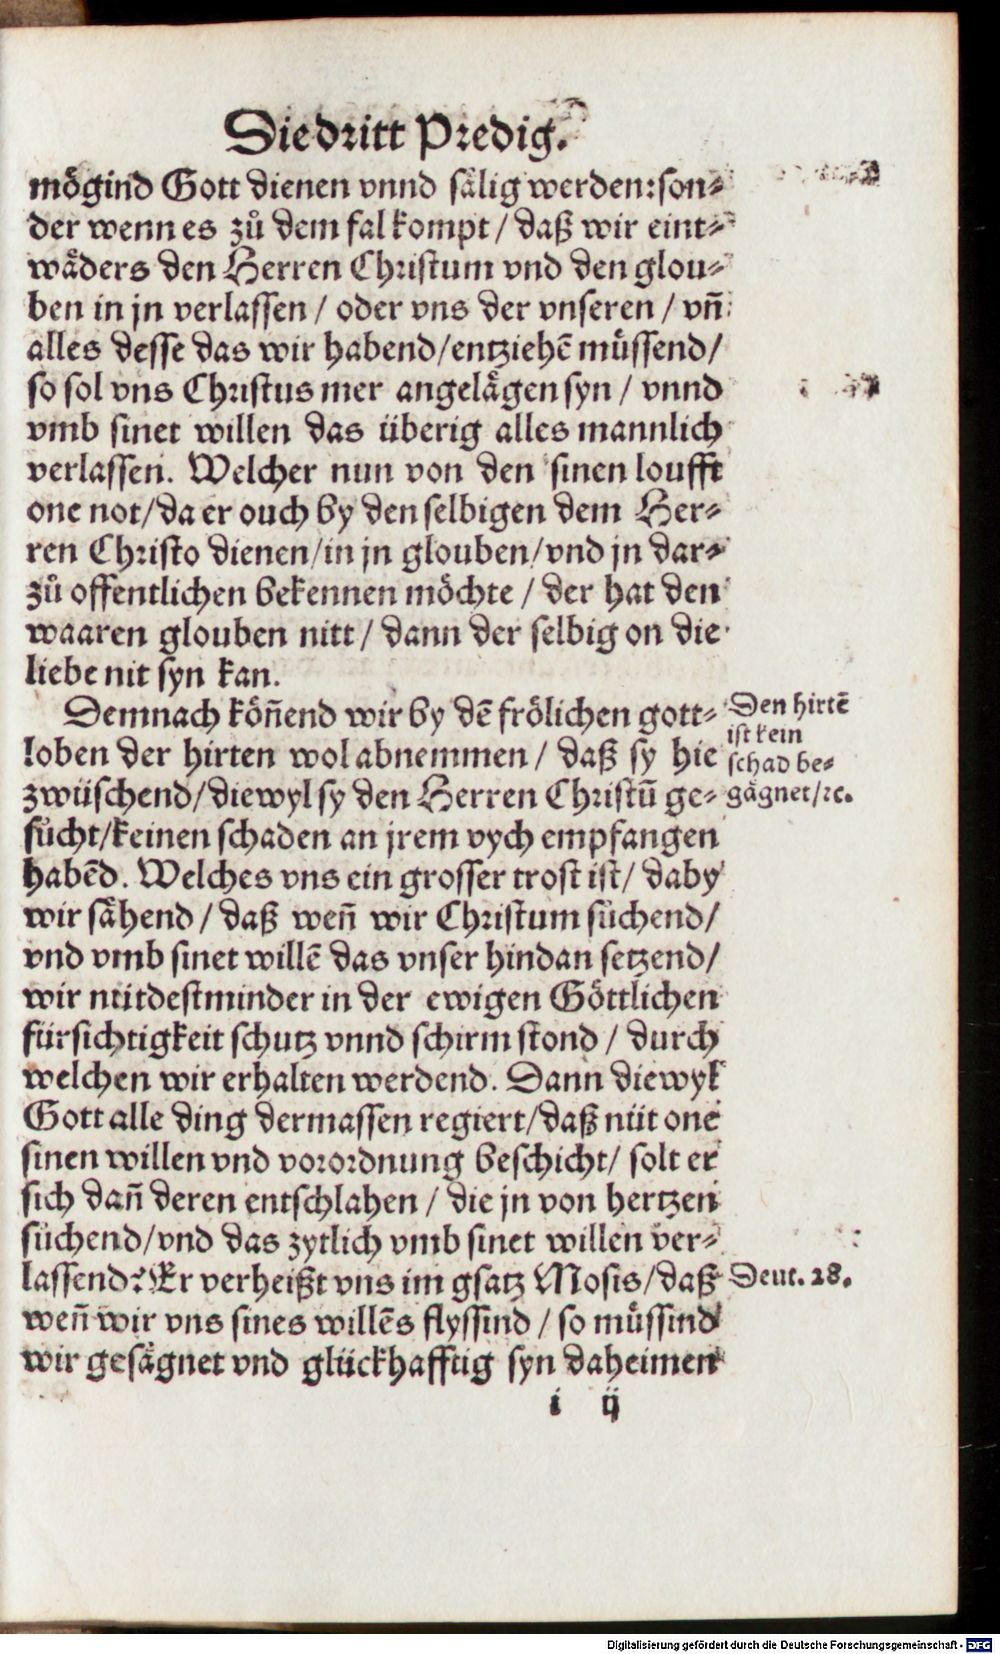 Die dritt Predig.
mögind Gott dienen vnnd sälig werden: son⸗
der wenn es zů dem fal kompt / daß wir eint⸗
wäders den Herren Christum vnd den glou⸗
ben in jn verlassen / oder vns der vnseren / vn̄
alles desse das wir habend / entziehē müssend /
so sol vns Christus mer angelägen syn / vnnd
vmb sinet willen das überig alles mannlich
verlassen. Welcher nun von den sinenloufft
one not / da er ouch by den selbigen dem Her⸗
ren Christo dienen / in jn glouben / vnd jn dar⸗
zů offentlichen bekennen möchte / der hat den
waaren glouben nitt / dann der selbig on die
liebe nit syn kan.
Demnach kön̄end wir by dē frölichen gott⸗
loben der hirten wol abnemmen / daß sy hie
zwüschend / diewyl sy den Herren Christū ge⸗
sůcht / keinen schaden an jrem vych empfangen
habēd. Welches vns ein grosser trost ist / daby
wir sähend / daß wen̄ wir Christum sůchend /
vnd vmb sinet willē das vnser hindan setzend /
wir nütdestminder in der ewigen Göttlichen
fürsichtigkeit schutz vnnd schirm stond / durch
welchen wir erhalten werdend. Dann diewyl
Gott alle ding dermassen regiert / daß nüt one
sinen willen vnd vorordnung beschicht / solt er
sich dan̄ deren entschlahen / die jn von hertzen
sůchend / vnd das zytlich vmb sinet willen ver⸗
lassend? Er verheißt vns im gsatz Mosis / daß
wen̄ wir vns sines willēs flyssind / so müssind
wir gesägnet vnd glückhafftig syn daheimen
i ij
Den hirtē
ist kein
schad be⸗
gägnet / ꝛc.
Deut. 28.
Digitalisierung gefördert durch die Deutsche Forschungsgemeinschaft - DFG